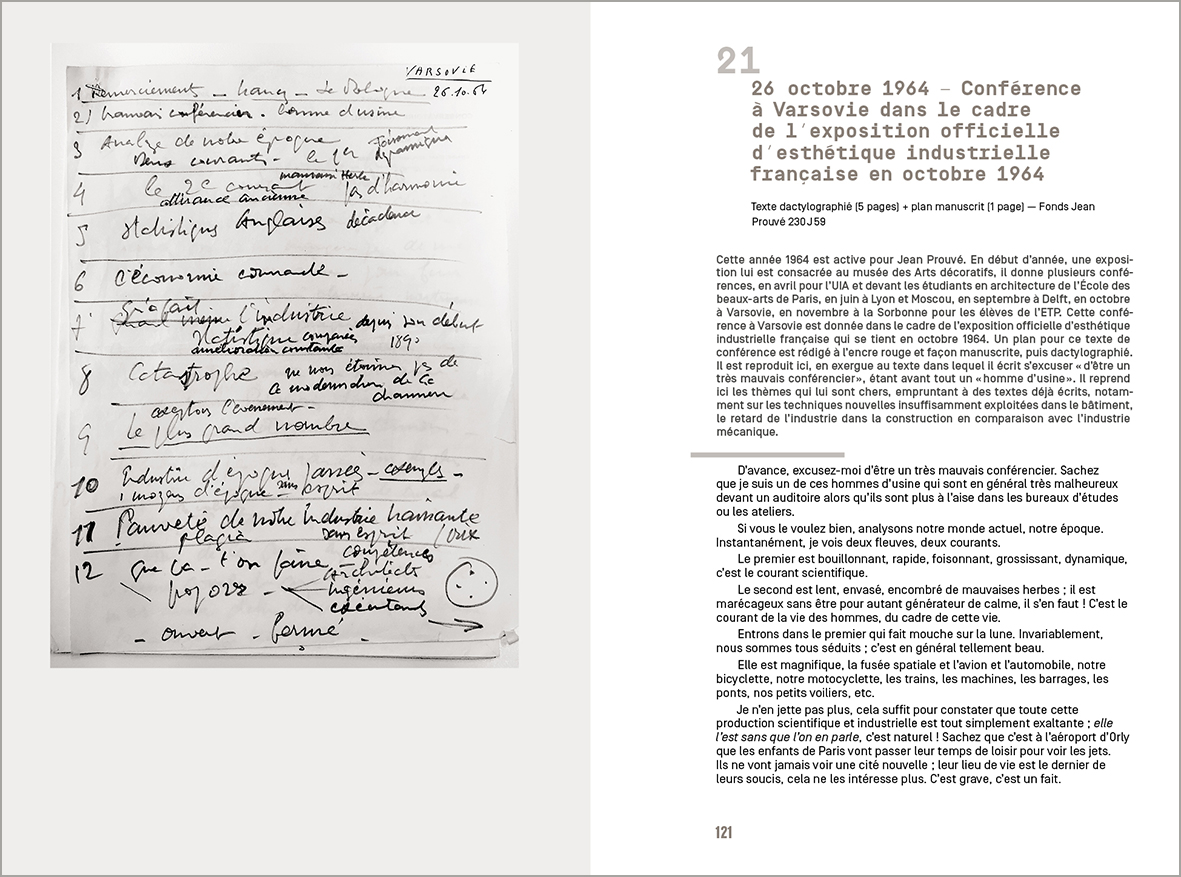 VARSOVIE
1 Remerciements - Nancy - La Pologne 26.10.64
2) mauvais conférencier. homme d'usine
3 Analyse de notre époque foisonnant
Deux courants - le 1er dynamique
mauvaises herbes
4 le 2e courant pas d'harmonie
alliance ancienne
5 statistiques Anglaises décadence
6 L'économie courante -
7 l'industrie depuis son début
statistique comparée 1890
amélioration constante
8 Catastrophe ne nous étonnons pas de
la modernisation de la
chaumière
acceptons l'événement -
9 Le plus grand nombre
10 Industrie d'époque passée -
moyens d'époque sans esprit
11 Pauvreté de notre Industrie naissante
plagia sans esprit
compétences
12 que va-t'on faire architectes
ingénieurs
exécutants
- ouvert - fermé -
21
26 octobre 1964 – Conférence
à Varsovie dans le cadre
de l'exposition officielle
d'esthétique industrielle
française en octobre 1964
Texte dactylographié (5 pages) + plan manuscrit (1 page) — Fonds Jean
Prouvé 230J59
Cette année 1964 est active pour Jean Prouvé. En début d'année, une exposi-
tion lui est consacrée au musée des Arts décoratifs, il donne plusieurs confé-
rences, en avril pour l'UIA et devant les étudiants en architecture de l'École des
beaux-arts de Paris, en juin à Lyon et Moscou, en septembre à Delft, en octobre
à Varsovie, en novembre à la Sorbonne pour les élèves de l'ETP. Cette confé-
rence à Varsovie est donnée dans le cadre de l'exposition officielle d'esthétique
industrielle française qui se tient en octobre 1964. Un plan pour ce texte de
conférence est rédigé à l'encre rouge et façon manuscrite, puis dactylographié.
Il est reproduit ici, en exergue au texte dans lequel il écrit s'excuser «d'être un
très mauvais conférencier», étant avant tout un «homme d'usine». Il reprend
ici les thèmes qui lui sont chers, empruntant à des textes déjà écrits, notam-
ment sur les techniques nouvelles insuffisamment exploitées dans le bâtiment,
le retard de l'industrie dans la construction en comparaison avec l'industrie
mécanique.
D'avance, excusez-moi d'être un très mauvais conférencier. Sachez
que je suis un de ces hommes d'usine qui sont en général très malheureux
devant un auditoire alors qu'ils sont plus à l'aise dans les bureaux d'études
ou les ateliers.
Si vous le voulez bien, analysons notre monde actuel, notre époque.
Instantanément, je vois deux fleuves, deux courants.
Le premier est bouillonnant, rapide, foisonnant, grossissant, dynamique,
c'est le courant scientifique.
Le second est lent, envasé, encombré de mauvaises herbes ; il est
marécageux sans être pour autant générateur de calme, il s'en faut ! C'est le
courant de la vie des hommes, du cadre de cette vie.
Entrons dans le premier qui fait mouche sur la lune. Invariablement,
nous sommes tous séduits ; c'est en général tellement beau.
Elle est magnifique, la fusée spatiale et l'avion et l'automobile, notre
bicyclette, notre motocyclette, les trains, les machines, les barrages, les
ponts, nos petits voiliers, etc.
Je n'en jette pas plus, cela suffit pour constater que toute cette
production scientifique et industrielle est tout simplement exaltante ; elle
l'est sans que l'on en parle, c'est naturel ! Sachez que c'est à l'aéroport d'Orly
que les enfants de Paris vont passer leur temps de loisir pour voir les jets.
Ils ne vont jamais voir une cité nouvelle ; leur lieu de vie est le dernier de
leurs soucis, cela ne les intéresse plus. C'est grave, c'est un fait.
121